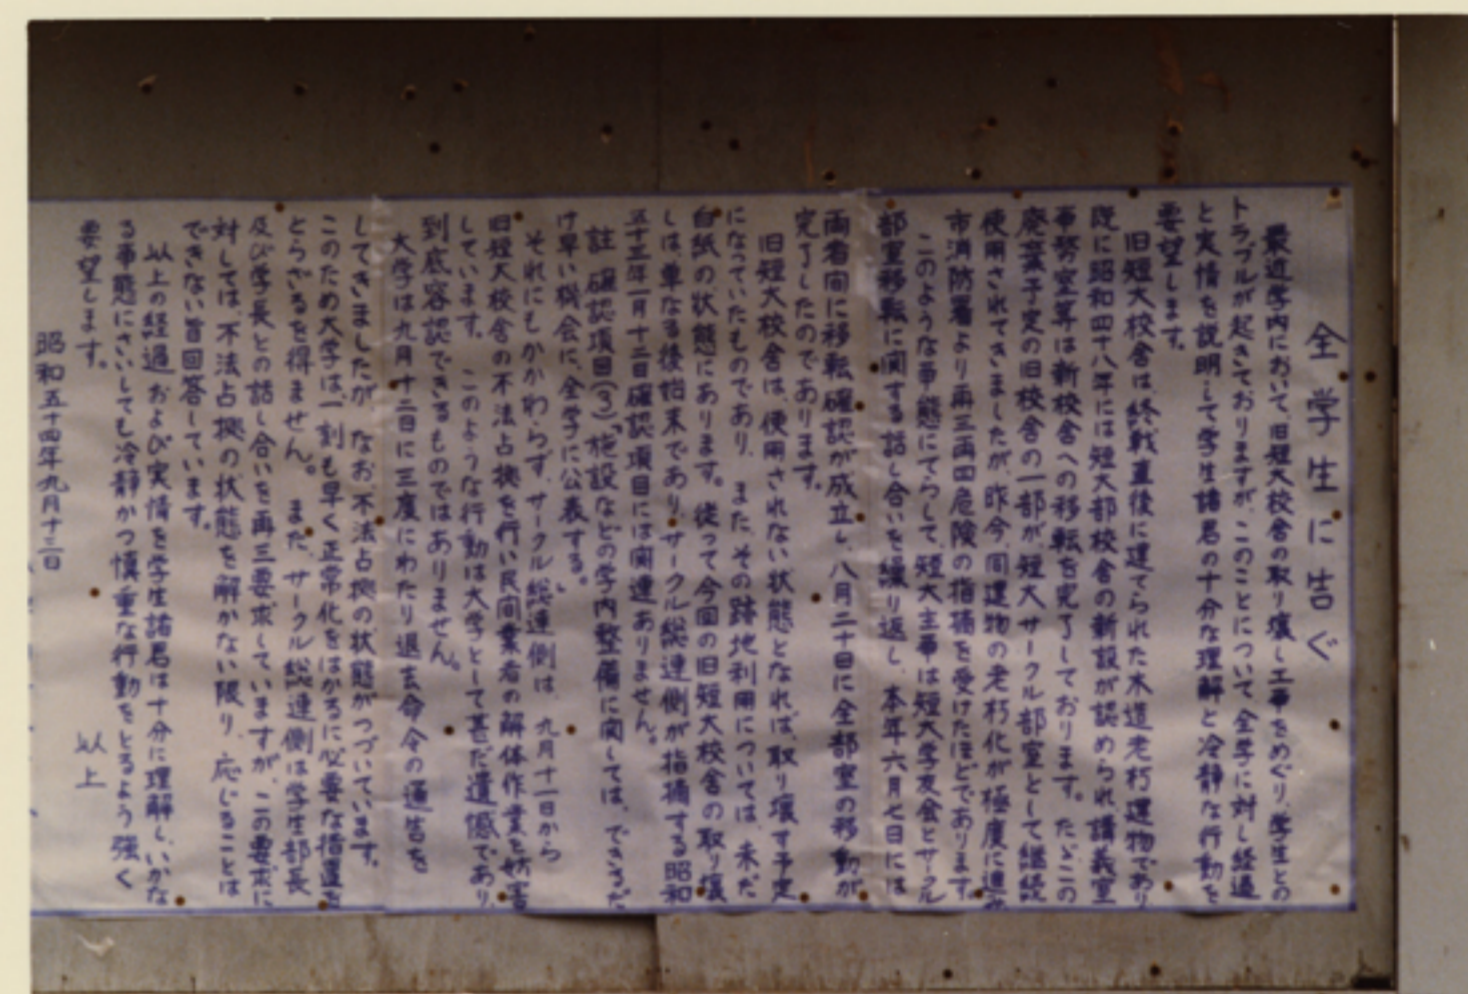 全学生に告ぐ
最近学内において、旧短大校舎の取り壊し工事をめぐり、学生との
トラブルが起きておりますが、このことについて全学に対し経過
と実情を説明して学生諸君の十分な理解と冷静な行動を
要望します。
旧短大校舎は、終戦直後に建てられた木造老朽建物であり
既に昭和四十八年には短大部校舎の新設が認められ講義室
事務室等は新校舎への移転を完了しております。ただこの
廃棄予定の旧校舎の一部が、短大サークル部室として継続
使用されてきましたが、昨今、同建物の老朽化が極度に進み
市消防署より再三再四危険の指摘を受けたほどであります。
このような事態にてらして、短大主事は短大学友会とサークル
部室移転に関する話し合いを繰り返し、本年六月七日には
両者間に移転確認が成立し、八月二十日に全部室の移動が
完了したのであります。
旧短大校舎は、使用されない状態となれば、取り壊す予定
になっていたものであり、また、その跡地利用については、未だ
白紙の状態にあります。従って今回の旧短大校舎の取り壊
しは、単なる後始末であり、サークル総連側が指摘する昭和
五十三年一月十二日確認項目には関連ありません。
註 確認項目(3)「施設などの学内整備に関しては、できるだ
け早い機会に、全学に公表する。」
それにもかかわらず、サークル総連側は、九月十一日から
旧短大校舎の不法占拠を行い民間業者の解体作業を妨害
しています。このような行動は大学として甚だ遺憾であり、
到底容認できるものではありません。
大学は九月十二日に三度にわたり退去命令の通告を
してきましたが、なお不法占拠の状態がつづいています。
このため大学は、一刻も早く正常化をはかるに必要な措置を
とらざるを得ません。また、サークル総連側は学生部長
及び学長との話し合いを再三要求していますが、この要求に
対しては、不法占拠の状態を解かない限り、応じることは
できない旨回答しています。
以上の経過および実情を学生諸君は十分に理解し、いかな
る事態にさいしても冷静かつ慎重な行動をとるよう強く
要望します。
以上
昭和五十四年九月十三日